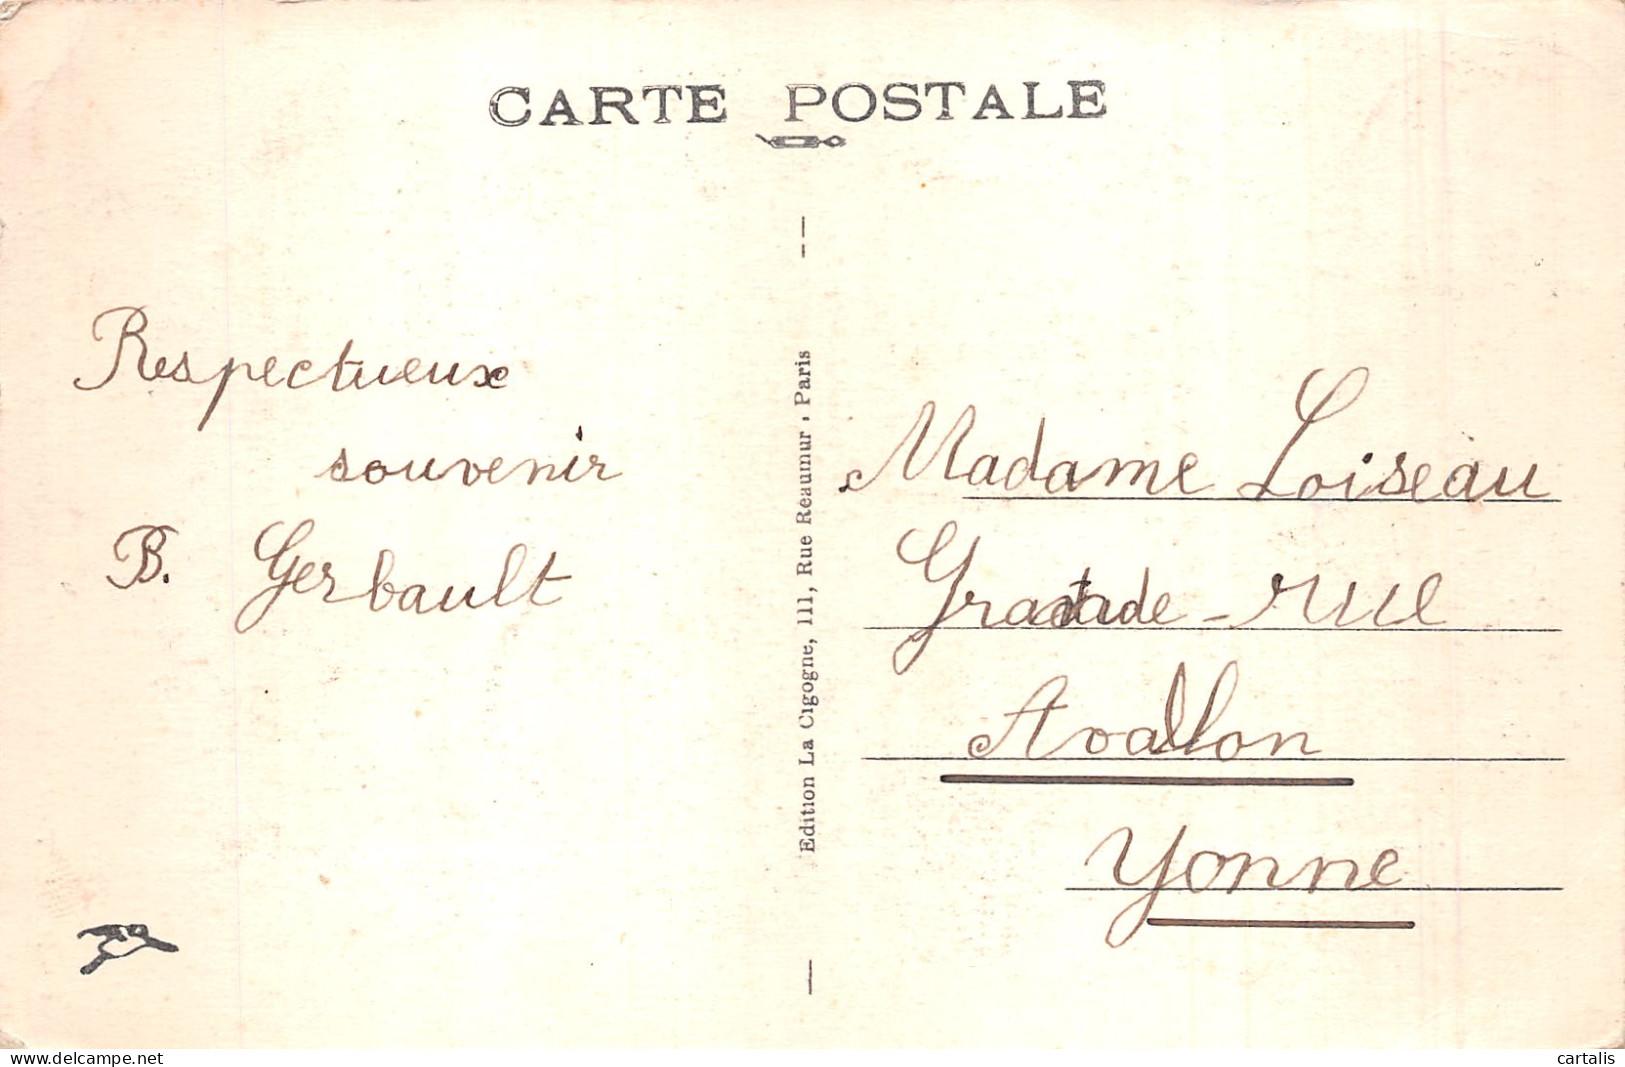 CARTE POSTALE
Respectueux
souvenir
B. Gerbault
Edition La Cigogne, 111, Rue Reaumur, Paris
Madame Loiseau
Grande-rue
Avallon
Yonne
www.delcampe.net
cartalis